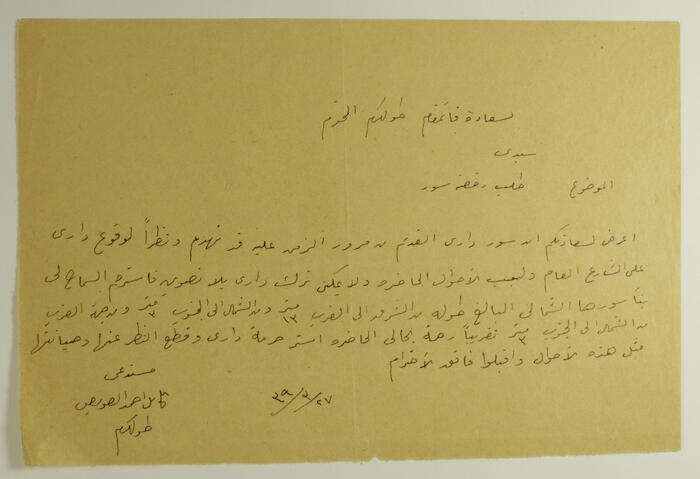 لسعادة قائمقام طولكرم المحترم
سيدي
الموضوع طلب رخصة سور
اعرض لسعادتكم ان سور داري القديم من مرور الزمن عليه قد تهدم ونظراً لوقوع داري
على الشارع العام ولسبب الأحوال الحاضره ولا يمكن ترك داري بلا تصوين فاسترحم السماح لي
ببنا سورها الشمالي البالغ طوله من الشرق الى الغرب ١٣ متر ومن الشمال الى الجنوب ٣ متر ومن جهة الغرب
من الشمال الى الجنوب ٣ متر تقريباً رحمة بحالي الحاضره استر حرمة داري وقطع النظر عنها وصيانتها
مثل هذه الأحوال واقبلوا فائق الاحترام
مستدعي
كامل احمد
طولكرم
٢٧/٣/٣٩